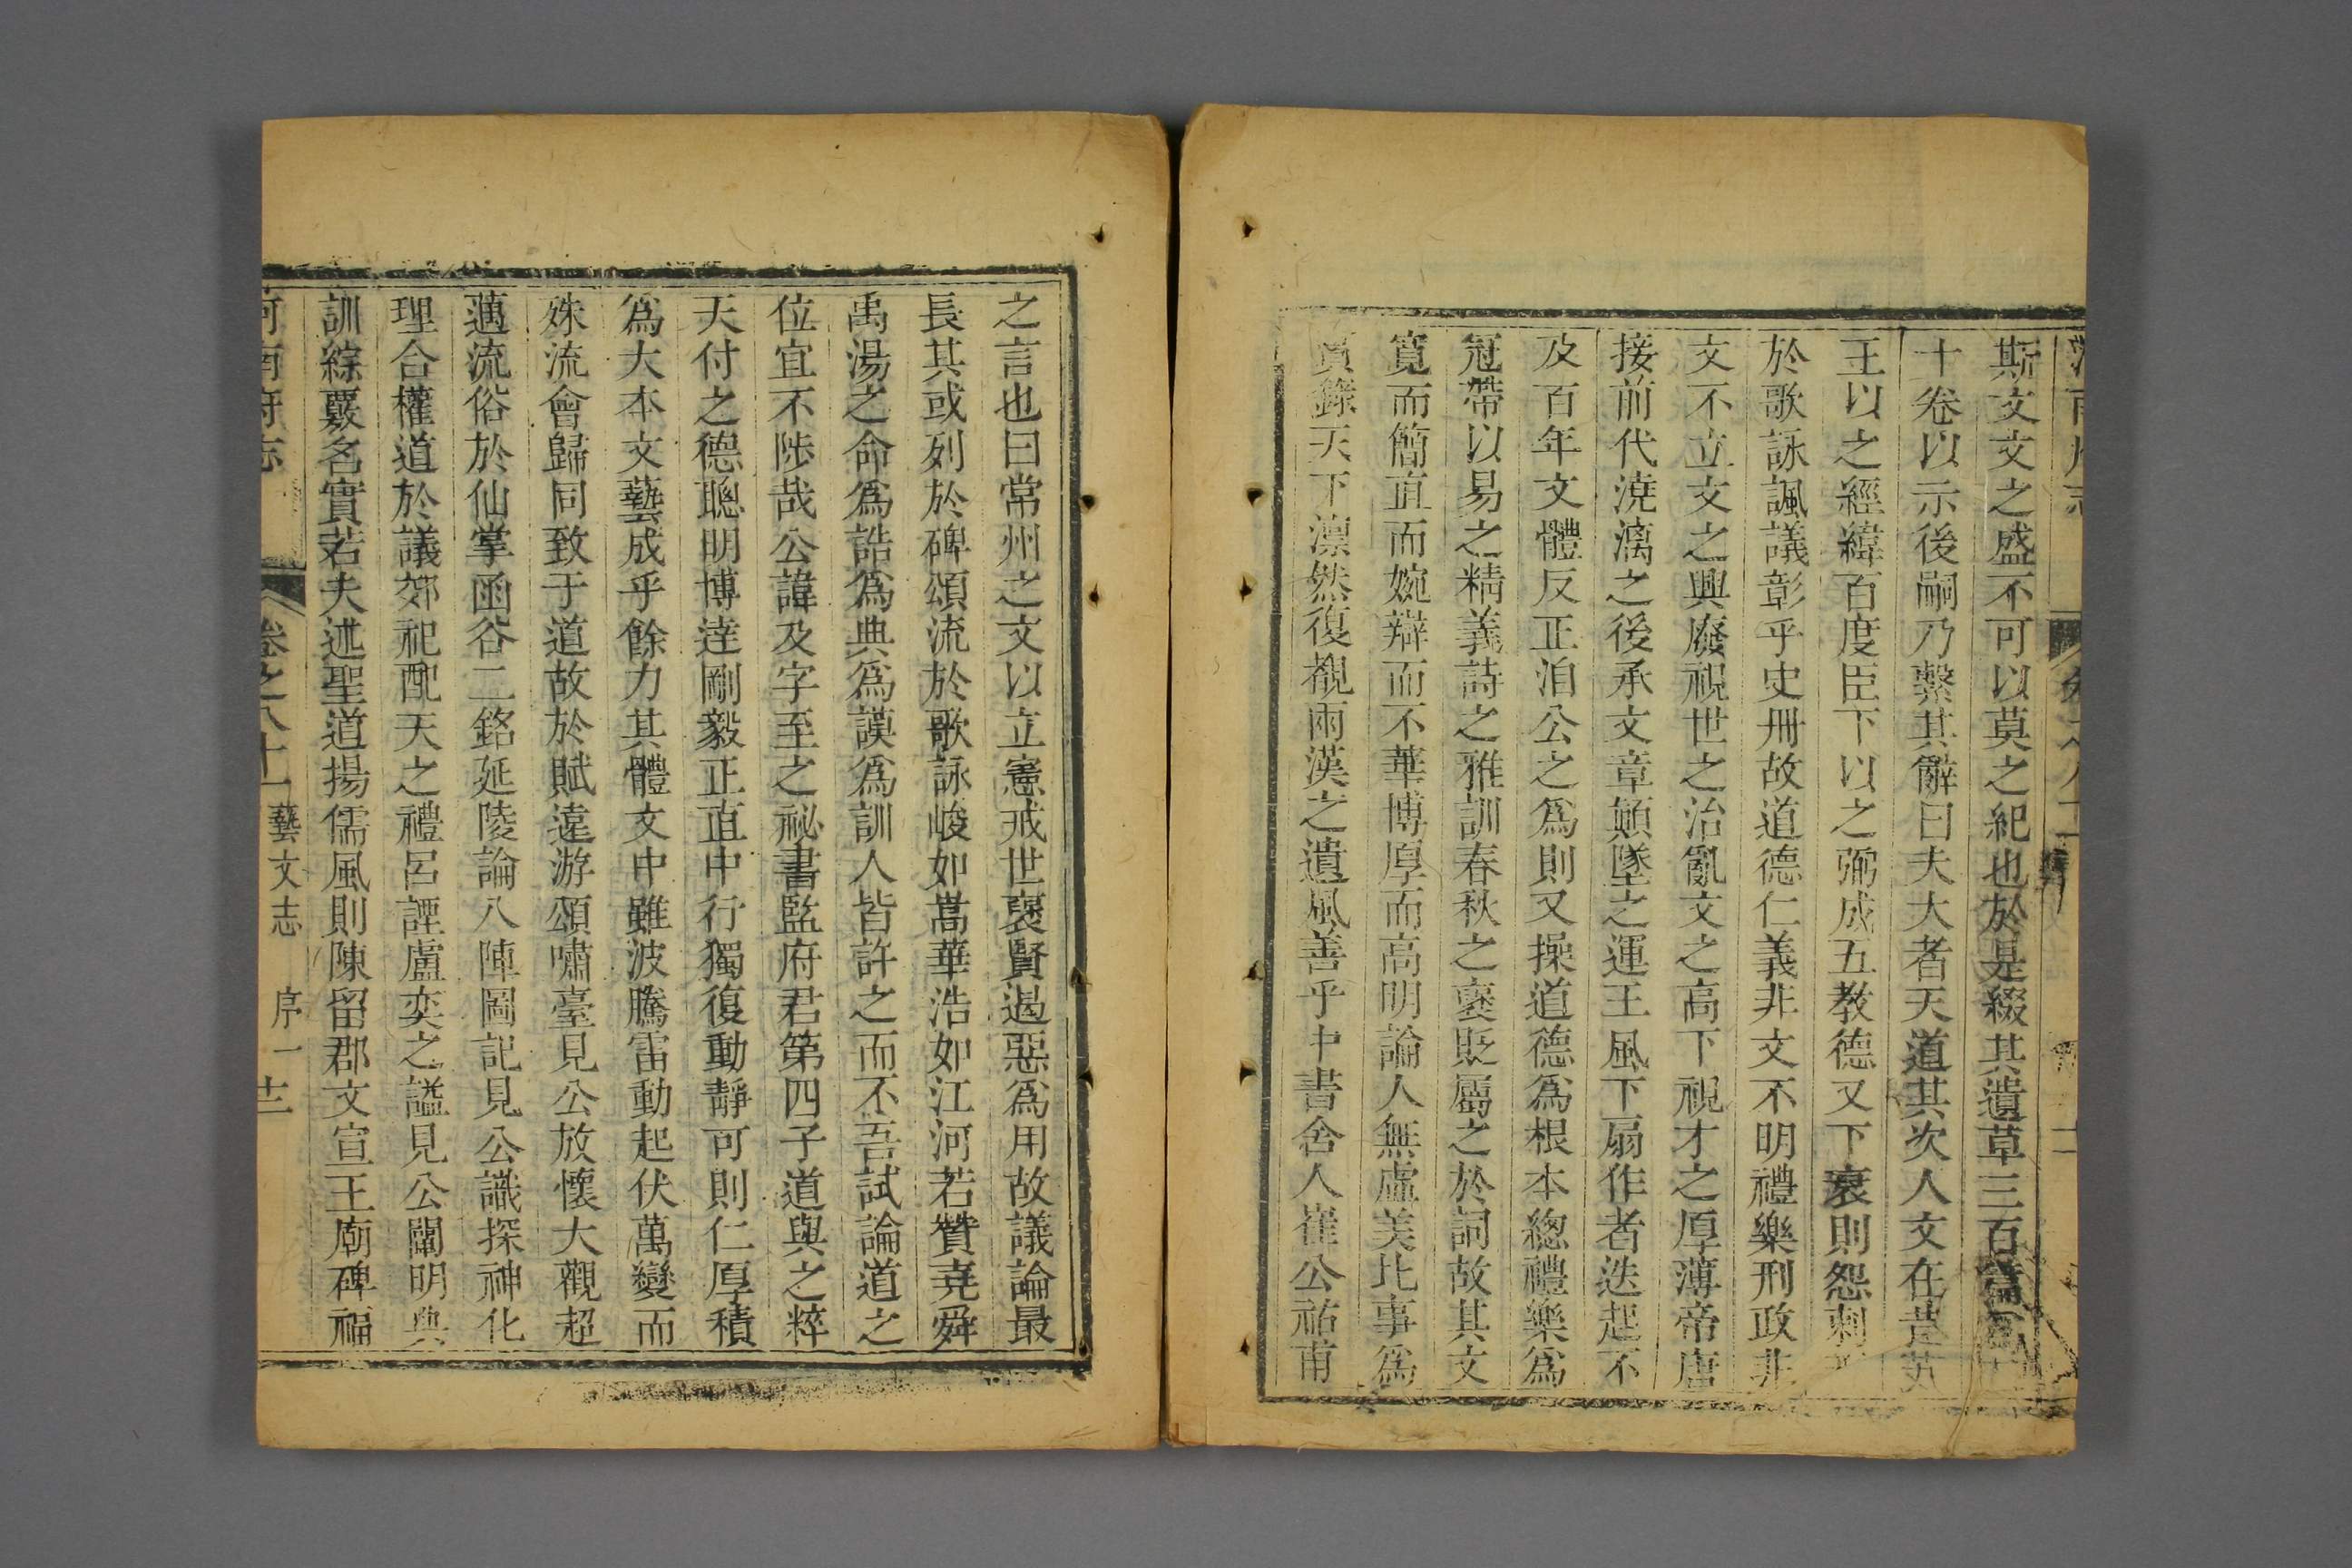 斯文文之盛不可以莫之紀也於是綴其遺草三百篇爲
十卷以示後嗣乃繫其辭曰夫大者天道其次人文在昔
王以之經緯百度臣下以之弼成五教德又下衰則怨刺
於歌詠諷議彰乎史冊故道德仁義非文不明禮樂刑政非
文不立文之興廢視世之治亂文之高下視才之厚薄帝唐
接前代澆漓之後承文章顛墜之運王風下扇作者迭起不
及百年文體反正洎公之爲則又操道德爲根本總禮樂爲
冠帶以易之精義詩之雅訓春秋之褒貶屬之於詞故其文
寬而簡直而婉辯而不華博厚而高明論人無虛美比事爲
實錄天下凛然復覩兩漢之遺風善乎中書舍人崔公祐甫
之言也曰常州之文以立憲戒世褒賢遏惡爲用故議論最
長其或列於碑頌流於歌詠峻如嵩華浩如江河若贊堯舜
禹湯之命爲誥爲典爲謨爲訓人皆許之而不吾試論道之
位宜不陟哉公諱及字至之祕書監府君第四子道與之粹
天付之德聰明博達剛毅正直中行獨復動靜可則仁厚積
爲大本文藝成乎餘力其體文中雖波騰雷動起伏萬變而
殊流會歸同致于道故於賦遠游頌嘯臺見公放懷大觀超
邁流俗於仙掌函谷二銘延陵論八陣圖記見公識探神化
理合權道於議郊祀配天之禮呂諲盧奕之諡見公闡明典
訓綜覈名實若夫述聖道揚儒風則陳留郡文宣王廟碑福
河南府志 卷之八十一 藝文志 序一 十二